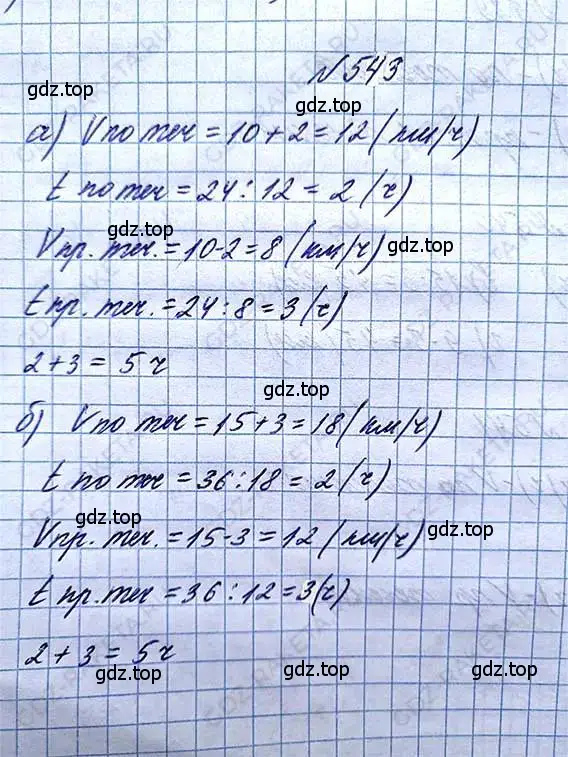 №543
а) Vпо теч = 10 + 2 = 12 (км/ч)
t по теч = 24 : 12 = 2 (ч)
Vпр. теч. = 10-2 = 8 (км/ч)
t пр. теч. = 24 : 8 = 3 (ч)
2 + 3 = 5 ч
б) Vпо теч = 15+3 = 18 (км/ч)
t по теч = 36 : 18 = 2 (ч)
Vпр. теч. = 15-3 = 12 (км/ч)
t пр. теч = 36 : 12 = 3 (ч)
2 + 3 = 5 ч
gdz.top
gdz.top
gdz.top
gdz.top
gdz.top
gdz.top
gdz.top
gdz.top
gdz.top
gdz.top
gdz.top
gdz.top